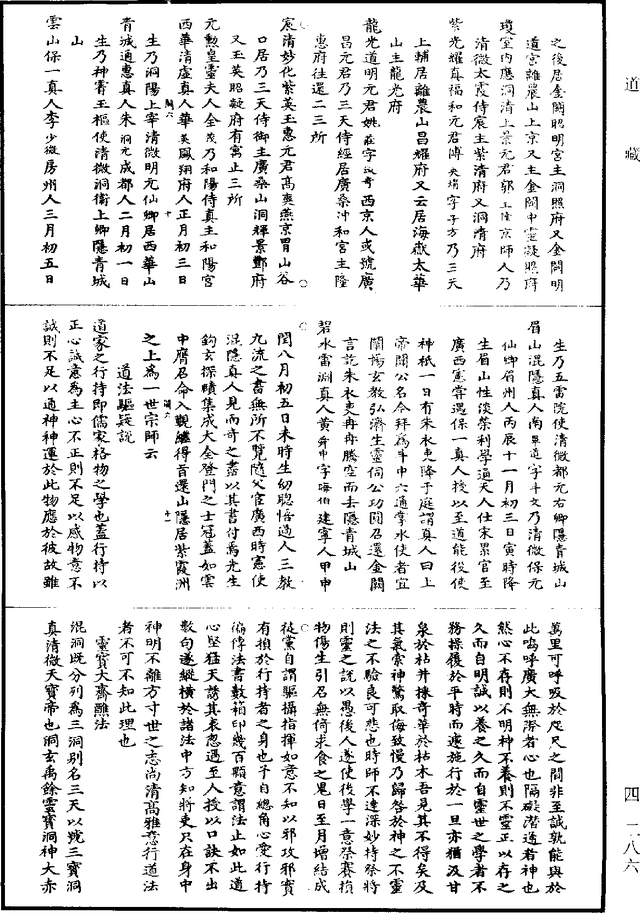 道藏
之後居金闕昭明宮主洞照府又金闕明
道宮離農山上京又主金闕中靈凝照府
瓊室內應洞清上景元君郭玉隆京師人乃
清微太霞侍宸主紫清府又洞清府
紫光耀真福和元君傅央焴字子方乃三天
上輔居離農山昌耀府又云居海嶽太華
山主龍光府
龍光道明元君姚莊字淑奇西京人或號廣
昌元君乃三天侍經居廣桑沖和宮主隆
惠府往還二三所
宸清妙化紫英玉惠元君高奭燕京胃山谷
口居乃三天侍御主廣桑山洞輝景鄷府
又玉英昭凝府有寓止三所
元勲皇靈夫人全茂乃和陽侍真主和陽宮
西華清虛真人華英鳳翔府人正月初三日
生乃洞陽上宰清微明元仙卿居西華山
青城通惠真人朱洞元成都人二月初一日
生乃神霄玉樞使清微洞衛上卿隱青城
山
雲山保一真人李少微房州人三月初五日
生乃五雷院使清微都元右卿隱青城山
眉山混隱真人南畢道字斗文乃清微保元
仙卿眉州人丙辰十一月初三日寅時降
生眉山性淡榮利學通天人仕宋累官至
廣西憲嘗遇保一真人授以至道能役使
神祇一日有朱衣吏降于庭謂真人曰上
帝聞公名今拜為斗中六通掌水使者宜
闡揚玄教弘濟生靈伺公功圓召還金闕
言訖朱衣吏冉冉騰空而去隱青城山
碧水雷淵真人黄舜申字晦伯建寧人甲申
閏八月初五日未時生幼聰悟過人三教
九流之書無所不覽隨父官廣西時憲使
混隱真人見而奇之盡以其書付焉先生
鈎玄探賾集成大全登門之士冠蓋如雲
中膺召命入覲繼得首還山隱居紫霞洲
之上為一世宗師云
道法驅疑說
道家之行持即儒家格物之學也蓋行持以
正心誠意為主心不正則不足以感物意不
誠則不足以通神神運於此物應於彼故雖
萬里可呼吸於咫尺之間非至誠孰能與於
此嗚呼廣大無際者心也隔礙潛通者神也
然心不存則不明神不養則不靈正以存之
久而自明誠以養之久而自靈世之學者不
務操履於平時而遽施行於一旦亦猶汲甘
泉於枯井採奇華於枯木吾見其不得矣及
其氣索神驚取侮致慢乃歸咎於神之不靈
法之不驗良可悲也時師不達深妙持祭將
則靈之說以愚後人遂使後學一意祭賽損
物傷生引召無倚求食之鬼日至月增結成
從黨自謂驅攝指揮如意不知以邪攻邪實
有損於行持者之身也予自總角心愛行持
徧傳法書數箱印幾百顆意謂法止如此道
心堅猛天誘其衷忽遇至人授以口訣不出
數句遂縱横於諸法中方知將吏只在身中
神明不離方寸世之志尚清高雅意行道法
者不可不知此理也
靈寶大齋醮法
混洞既分列為三洞别名三天以號三寶洞
真清微天寶帝也洞玄禹餘靈寶洞神大赤
四—二八六